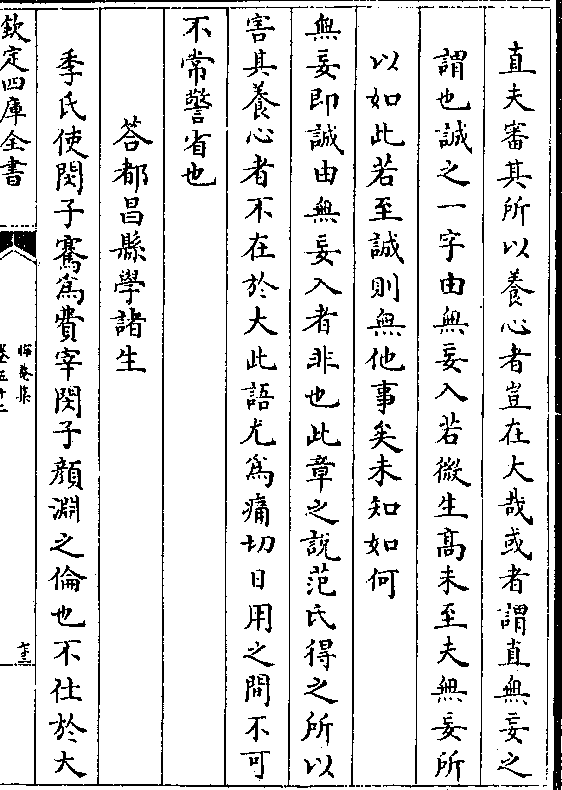 直夫審其所以養心者豈在大哉或者謂直無妄之
謂也誠之一字由無妄入若微生髙未至夫無妄所
以如此若至誠則無他事矣未知如何
無妄即誠由無妄入者非也此章之説范氏得之所以
害其養心者不在於大此語尤為痛切日用之間不可
不常警省也
答都昌縣學諸生
季氏使閔子騫為費宰閔子顔淵之倫也不仕於大
欽定四庫全書
晦菴集
卷五十二